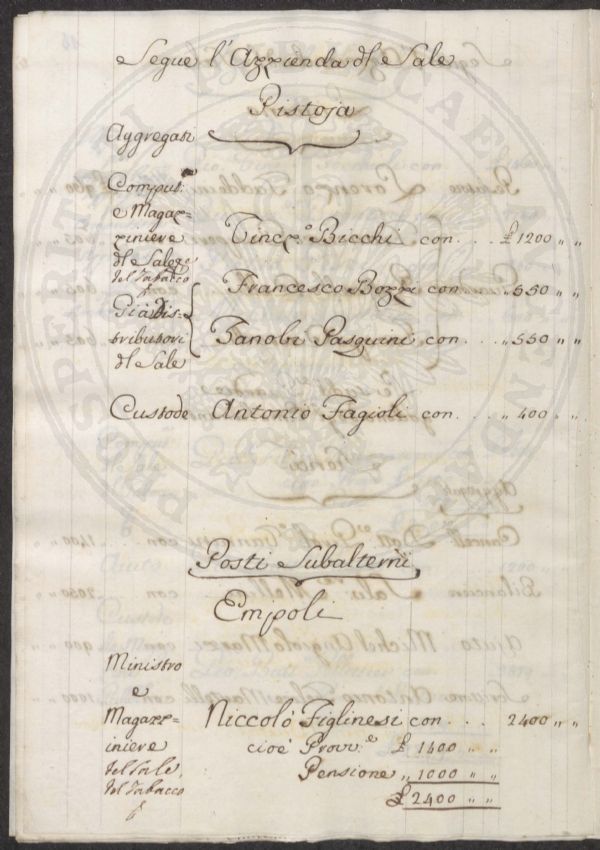 Segue l'Azzienda dl Sale
Pistoja
Aggregati
Comput:e
e Magaz=
ziniere
dl Sale, e
del Tabacco
Vincz:o Bicchi con . . . £ 1200 " "
Francesco Bozzi con " 550 " "
Già Dis=
tributori
dl Sale
Zanobi Pasquini con . . " 550 " "
Custode Antonio Fagioli con . . . " 400 " "
Posti Subalterni
Empoli
Ministro
e
Magazz=
iniere
del Sale,
del Tabacco
Niccolò Figlinesi con . . . 2400 " "
cioè Provv:e £ 1400 " "
Pensione " 1000 " "
£ 2400 " "